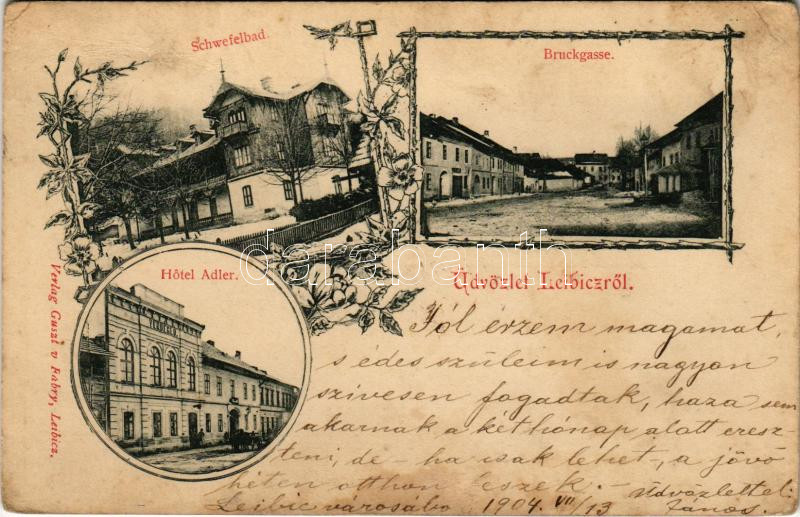 Schwefelbad.
Bruckgasse.
Hôtel Adler.
Üdvözlet Leibiczről.
Verlag Guszt v Fabry, Leibicz.
darabanth
Jól érzem magamat,
s édes szüleim is nagyon
szivesen fogadtak, haza sem
akarnak a két hónap alatt eresz-
teni, de - ha csak lehet, a jövő
héten otthon leszek. - Üdvözlettel:
Leibic városába 1904. VII/13 János.